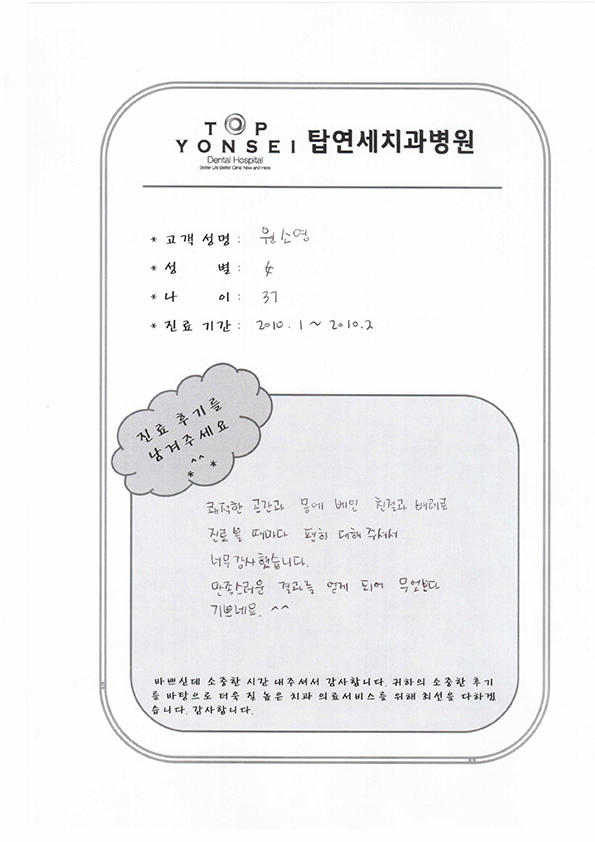 TOP
YONSEI 탑연세치과병원
Dental Hospital
Better Life Better Clinic Now and Here
* 고객 성명 : 원소영
* 성 별 : 女
* 나 이 : 37
* 진료 기간 : 2010.1 ~ 2010.2
진료 후기를
남겨주세요
^^
* *
쾌적한 공간과 몸에 베인 친절과 배려로
진료 볼 때마다 편히 대해 주셔서
너무 감사했습니다.
만족스러운 결과를 얻게 되어 무엇보다
기쁘네요. ^^
바쁘신데 소중한 시간 내주셔서 감사합니다. 귀하의 소중한 후기
를 바탕으로 더욱 질 높은 치과 의료서비스를 위해 최선을 다하겠
습니다. 감사합니다.